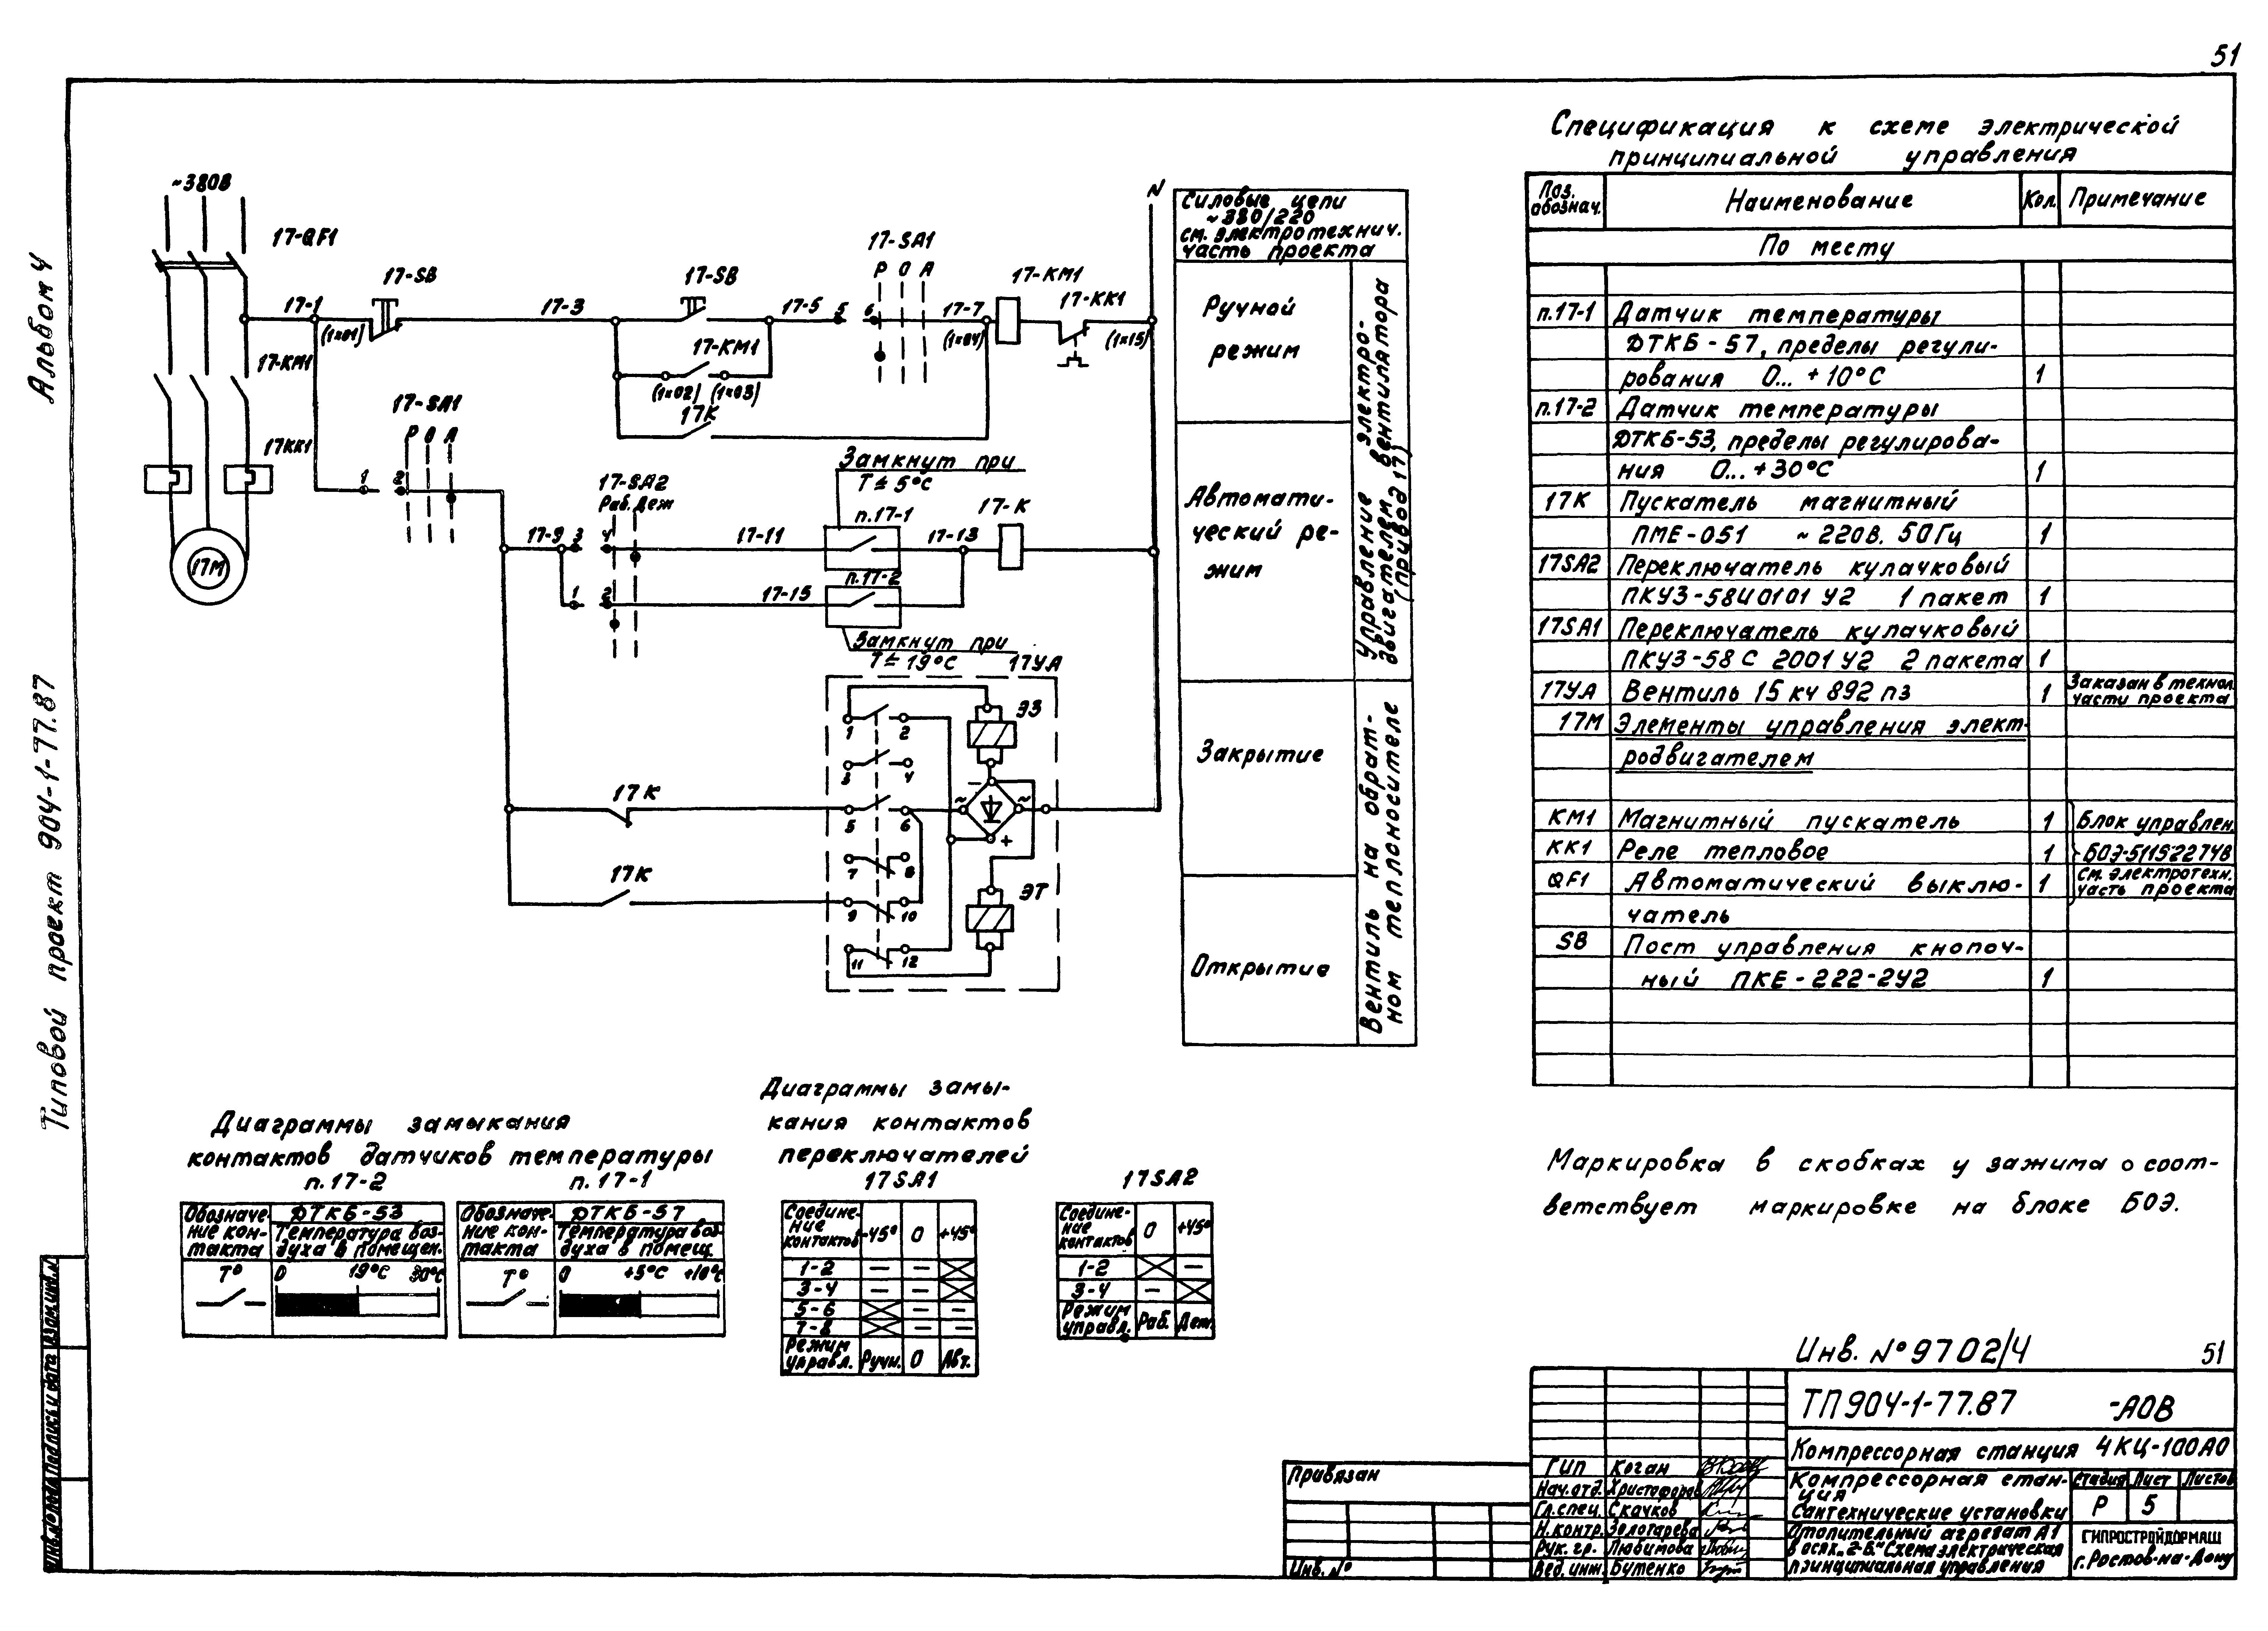 51
Альбом 4
Типовой проект 904-1-77.87
~380В
17-QF1
17-1
(1×01)
17-SB
17-3
17-SB
17-5
5
6
17-SA1
Р О А
17-7
(1×04)
17-КМ1
17-КК1
(1×15)
N
17-КМ1
17-КМ1
(1×02) (1×03)
17К
17КК1
17М
17-SA1
Р О А
1
2
17-SA2
Раб. Деж
Замкнут при
Т≤5°С
п.17-1
17-9
3
4
17-11
17-13
17-К
1
2
17-15
п.17-2
Замкнут при
Т≤19°С
17УА
ЭЗ
1
2
3
4
17К
5
6
~
~
-
+
7
8
17К
9
10
ЭТ
11
12
Силовые цепи
~380/220
см. электротехнич.
часть проекта
Ручной
режим
Автомати-
ческий ре-
жим
Управление электро-
двигателем вентилятора
(привод 17)
Закрытие
Открытие
Вентиль на обрат-
ном теплоносителе
Спецификация к схеме электрической
принципиальной управления
Поз. обознач. Наименование Кол. Примечание
По месту
п.17-1 Датчик температуры
ДТКБ-57, пределы регули-
рования 0...+10°С 1
п.17-2 Датчик температуры
ДТКБ-53, пределы регулирова-
ния 0...+30°С 1
17К Пускатель магнитный
ПМЕ-051 ~220В. 50Гц 1
17SA2 Переключатель кулачковый
ПКУЗ-58И0101 У2 1 пакет 1
17SA1 Переключатель кулачковый
ПКУЗ-58 С 2001 У2 2 пакета 1
17УА Вентиль 15 кч 892 пз 1 Заказан в технол. части проекта
17М Элементы управления элект-
родвигателем
КМ1 Магнитный пускатель 1 Блок управлен.
КК1 Реле тепловое 1 БОЭ-5115227УВ
QF1 Автоматический выклю- 1 См. электротехн. часть проекта
чатель
SB Пост управления кнопоч-
ный ПКЕ-222-2У2 1
Маркировка в скобках у зажима о соот-
ветствует маркировке на блоке БОЭ.
Диаграммы замыкания
контактов датчиков температуры
п.17-2 п.17-1
Обозначе-
ние кон-
такта
ДТКБ-53
Температура воз-
духа в помещен.
Т° 0 19°С 30°С
Обозначе-
ние кон-
такта
ДТКБ-57
Температура воз-
духа в помещ.
Т° 0 +5°С +10°С
Диаграммы замы-
кания контактов
переключателей
17SA1 17SA2
Соедине-
ние
контактов -45° 0 +45°
1-2 — —
3-4 — —
5-6 — —
7-8 — —
Режим
управл. Ручн. 0 Авт.
Соедине-
ние
контактов 0 +45°
1-2 —
3-4 —
Режим
управл. Раб. Деж.
Инв. № 9702/4 51
ТП904-1-77.87 -АОВ
Компрессорная станция 4КЦ-100А0
Компрессорная стан-
ция
Сантехнические установки
Стадия Лист Листов
Р 5
Отопительный агрегат А1
в осях „2-Б." Схема электрическая
принципиальная управления
ГИПРОСТРОЙДОРМАШ
г. Ростов-на-Дону
ГИП Коган
Нач.отд. Христофоров
Гл.спец. Скачков
Н.контр. Золотарева
Рук.гр. Любимова
Вед.инж. Бутенко
Привязан
Инв. №
Взам.инв.№
Подпись и дата
Инв.№ подл.